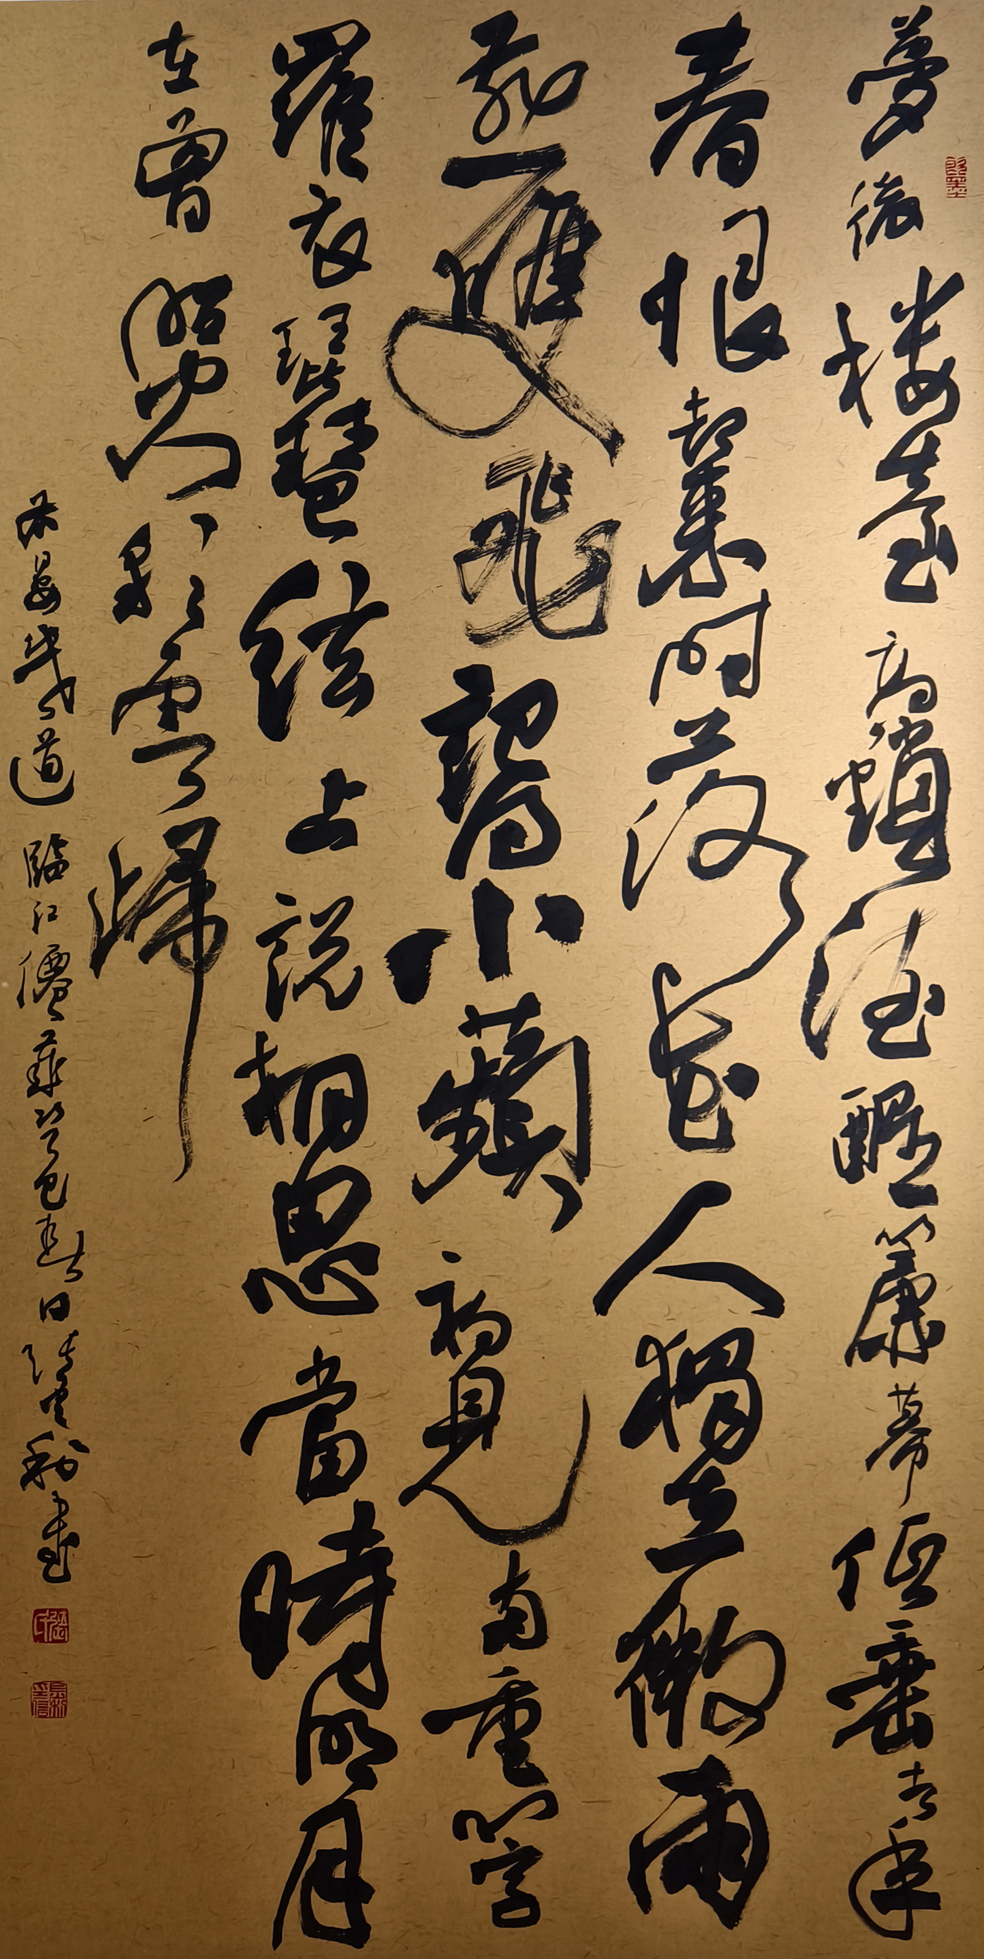 夢後楼臺高鎖酒醒簾幕低垂去年
春恨却來時落花人獨立微雨
燕雙飛記得小蘋初見兩重心字
羅衣琵琶弦上說相思當時明月
在曾照彩雲歸
宋晏幾道臨江僊歲乙巳春日書